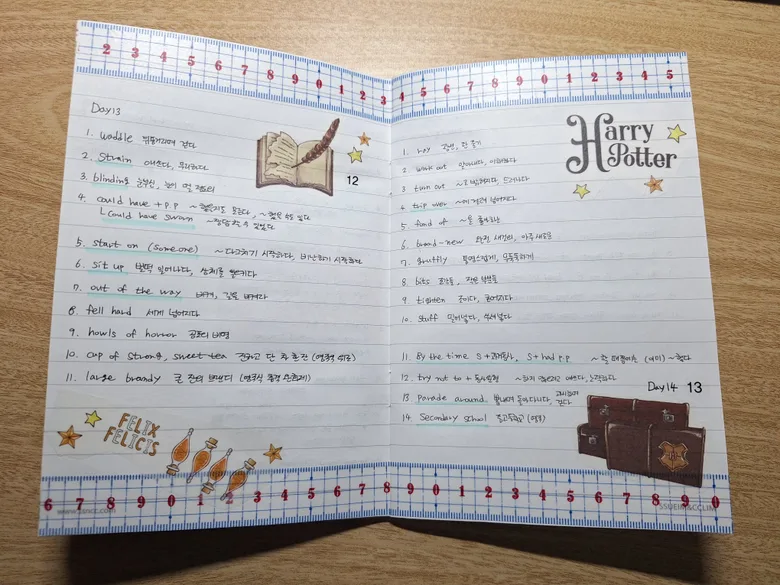 2 3 4 5 6 7 8 9 0 1 2 3
Day13
1. waddle 뒤뚱거리며 걷다
2. Strain 애쓰다,
3. blinding 눈부신, 눈이 멀 정도의
4. could have + p.p ~했을지도 모른다, ~했을 수도 있다
└ Could have sworn
5. start on (someone) ~다그치기 시작하다, 비난하기 시작하다
6. sit up 벌떡 일어나다, 상체를 일으키다
7. out of the way 비켜, 길을 비켜라
8. fell hard 세게 넘어지다
9. howls of horror 공포의 비명
10. cup of strong, sweet tea 진하고 단 차 한 잔 (영국식 위로)
11. large brandy 큰 잔의 브랜디 (영국식 충격 완화제)
12
FELIX
FELICIS
6 7 8 9 0 1 2 3 4 5 6 7 8
3 4 5 6 7 8 9 0 1 2 3 4 5
Harry
Potter
1. ray 광선, 한 줄기
2. work out 알아내다, 이해하다
3 turn out ~로 밝혀지다, 드러나다
4 trip over ~에 걸려 넘어지다
5. fond of ~을 좋아하는
6. brand-new 완전 새것의, 아주 새로운
7. gruffly 퉁명스럽게, 무뚝뚝하게
8. bits 조각들, 작은 부분들
9. tighten 조이다,
10. stuff 밀어넣다, 쑤셔넣다
11. By the time S + 과거동사, S + had p.p ~할 때쯤에는 (이미) ~했다
12. try not to + 동사원형 ~하지 않으려고 애쓰다, 노력하다
13 parade around 뽐내며 돌아다니다, 과시하며 걷다
14. Secondary school 중고등학교 (영국)
Day14 13
8 9 0 1 2 3 4 5 6 7 8 9 0